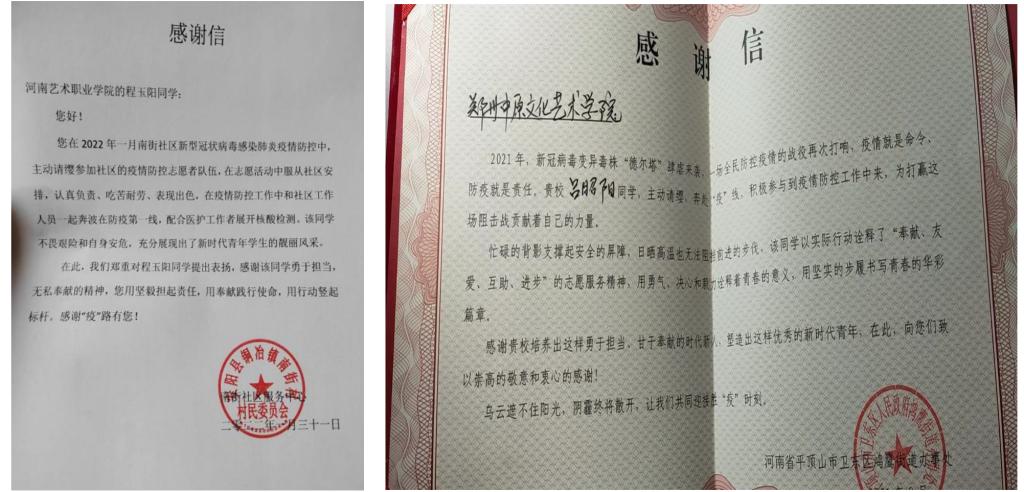 感谢信
河南艺术职业学院的程玉阳同学:
您好!
您在2022年一月南街社区新型冠状病毒感染肺炎疫情防控中,
主动请缨参加社区的疫情防控志愿者队伍,在志愿活动中服从社区安
排,认真负责、吃苦耐劳、表现出色,在疫情防控工作中和社区工作
人员一起奔波在防疫第一线,配合医护工作者展开核酸检测。该同学
不畏艰险和自身安危,充分展现出了新时代青年学生的靓丽风采。
在此,我们郑重对程玉阳同学提出表扬,感谢该同学勇于担当,
无私奉献的精神,您用坚毅担起责任,用奉献践行使命,用行动竖起
标杆。感谢“疫”路有您!
南街社区服务中心
月三十一日
阳县铜冶镇南街
村民委员会
感谢信
郑州中原文化艺术学院
2021年,新冠病毒变异毒株“德尔塔”肆虐来袭,一场全民防控疫情的战役再次打响、疫情就是命令、
防疫就是责任,贵校吕昭阳同学,主动请缨、奔赴“疫”线,积极参与到疫情防控工作中来,为打赢这
场阻击战贡献着自己的力量。
忙碌的背影支撑起安全的屏障,日晒高温也无法阻挡前进的步伐,该同学以实际行动诠释了“奉献、友
爱、互助、进步”的志愿服务精神,用勇气、决心和毅力诠释着青春的意义,用坚实的步履书写青春的华彩
篇章。
感谢贵校培养出这样勇于担当、甘于奉献的时代新人,塑造出这样优秀的新时代青年,在此,向您们致
以崇高的敬意和衷心的感谢!
乌云遮不住阳光,阴霾终将散开,让我们共同迎接胜“疫”时刻。
河南省平顶山市卫东区鸿鹰街道办事处
卫东区人民政府鸿鹰街道